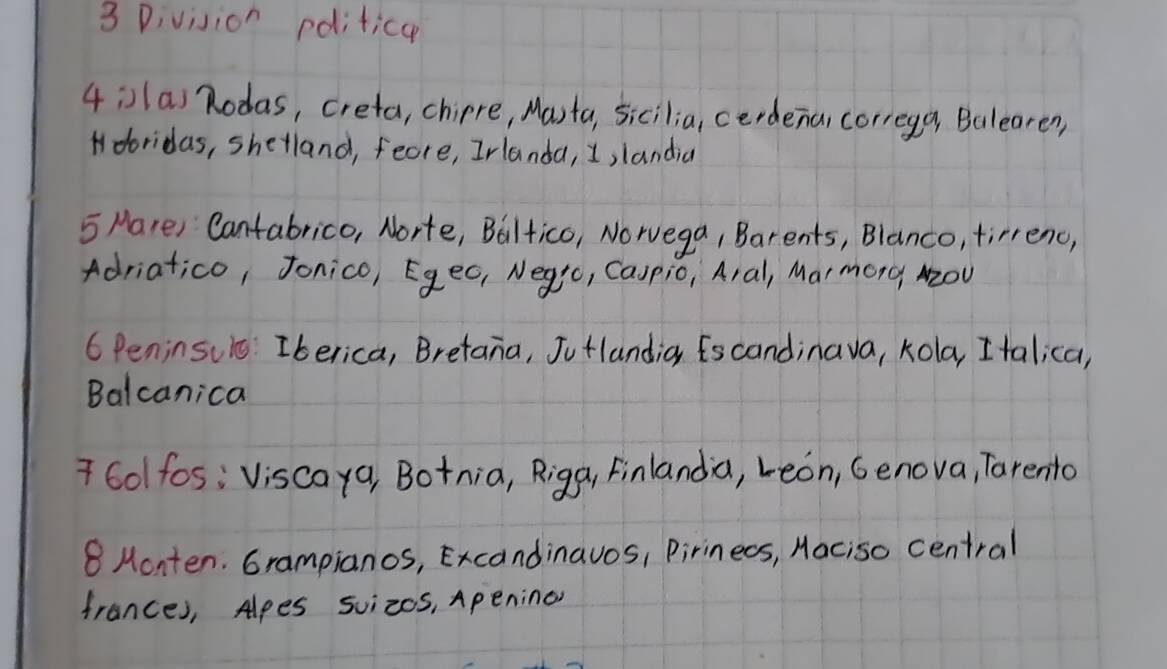 3 Division politica
4 islas Rodas, creta, chipre, Masta, Sicilia, cerdeña, correga, Balearen,
Hebridas, shetland, feore, Irlanda, Islandia
5 Mares: Cantabrico, Norte, Báltico, Norvega, Barents, Blanco, tirreno,
Adriatico, Jonico, Egeo, Negro, Caspio, Aral, Marmora, Azov
6 Peninsula: Iberica, Bretaña, Jutlandia, Escandinava, Kola, Italica,
Balcanica
7 Golfos: Viscaya, Botnia, Riga, Finlandia, León, Genova, Tarento
8 Monten. Grampianos, Excandinavos, Pirineos, Maciso central
frances, Alpes suizos, Apeninos